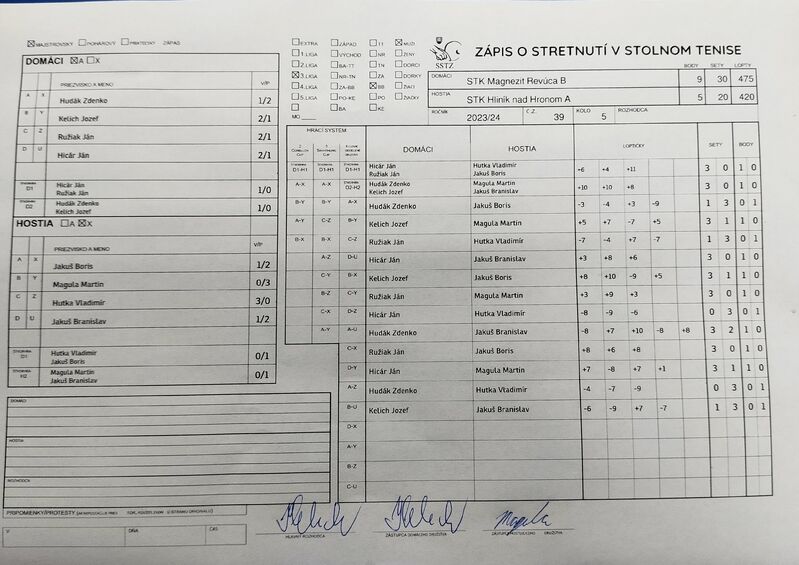 MAJSTROVSKÝ POHÁROVÝ PRIATEĽSKÝ ZÁPAS
DOMÁCI A X
PRIEZVISKO A MENO V/P
A X Hudák Zdenko 1/2
B Y Kelich Jozef 2/1
C Z Ružiak Ján 2/1
D U Hicár Ján 2/1
D1 Hicár Ján
Ružiak Ján 1/0
D2 Hudák Zdenko
Kelich Jozef 1/0
HOSTIA A X
PRIEZVISKO A MENO V/P
A X Jakuš Boris 1/2
B Y Magula Martin 0/3
C Z Hutka Vladimír 3/0
D U Jakuš Branislav 1/2
Hutka Vladimír
Jakuš Boris 0/1
H2 Magula Martin
Jakuš Branislav 0/1
DOMÁCI
HOSTIA
ROZHODCA
PRIPOMIENKY/PROTESTY
V DŇA ČAS
EXTRA ZÁPAD TT MUŽI
1. LIGA VÝCHOD NR ŽENY
2. LIGA BA-TT TN DORCI
3. LIGA NR-TN ZA DORKY
4. LIGA ZA-BB BB ŽIACI
5. LIGA PO-KE PO ŽIAČKY
BA KE
MO
SSTZ
ZÁPIS O STRETNUTÍ V STOLNOM TENISE
BODY SETY LOPTY
DOMÁCI STK Magnezit Revúca B 9 30 475
HOSTIA STK Hliník nad Hronom A 5 20 420
ROČNÍK 2023/24 Č.Z. 39 KOLO 5 ROZHODCA
HRACÍ SYSTÉM DOMÁCI HOSTIA LOPTIČKY SETY BODY
D1-H1 D1-H1 D1-H1 Hicár Ján Hutka Vladimír
Ružiak Ján Jakuš Boris +6 +4 +11 3 0 1 0
A-X A-X D2-H2 Hudák Zdenko Magula Martin
Kelich Jozef Jakuš Branislav +10 +10 +8 3 0 1 0
B-Y B-Y A-X Hudák Zdenko Jakuš Boris -3 -4 +3 -9 1 3 0 1
A-Y C-Z B-Y Kelich Jozef Magula Martin +5 +7 -7 +5 3 1 1 0
B-X B-X C-Z Ružiak Ján Hutka Vladimír -7 -4 +7 -7 1 3 0 1
A-Z D-U Hicár Ján Jakuš Branislav +3 +8 +6 3 0 1 0
C-Y B-X Kelich Jozef Jakuš Boris +8 +10 -9 +5 3 1 1 0
B-Z C-Y Ružiak Ján Magula Martin +3 +9 +3 3 0 1 0
C-X D-Z Hicár Ján Hutka Vladimír -8 -9 -6 0 3 0 1
A-Y A-U Hudák Zdenko Jakuš Branislav -8 +7 +10 -8 +8 3 2 1 0
C-X Ružiak Ján Jakuš Boris +8 +6 +8 3 0 1 0
D-Y Hicár Ján Magula Martin +7 -8 +7 +1 3 1 1 0
A-Z Hudák Zdenko Hutka Vladimír -4 -7 -9 0 3 0 1
B-U Kelich Jozef Jakuš Branislav -6 -9 +7 -7 1 3 0 1
D-X
A-Y
B-Z
C-U
Kelich Kelich Magula
HLAVNÝ ROZHODCA ZÁSTUPCA DOMÁCEHO DRUŽSTVA